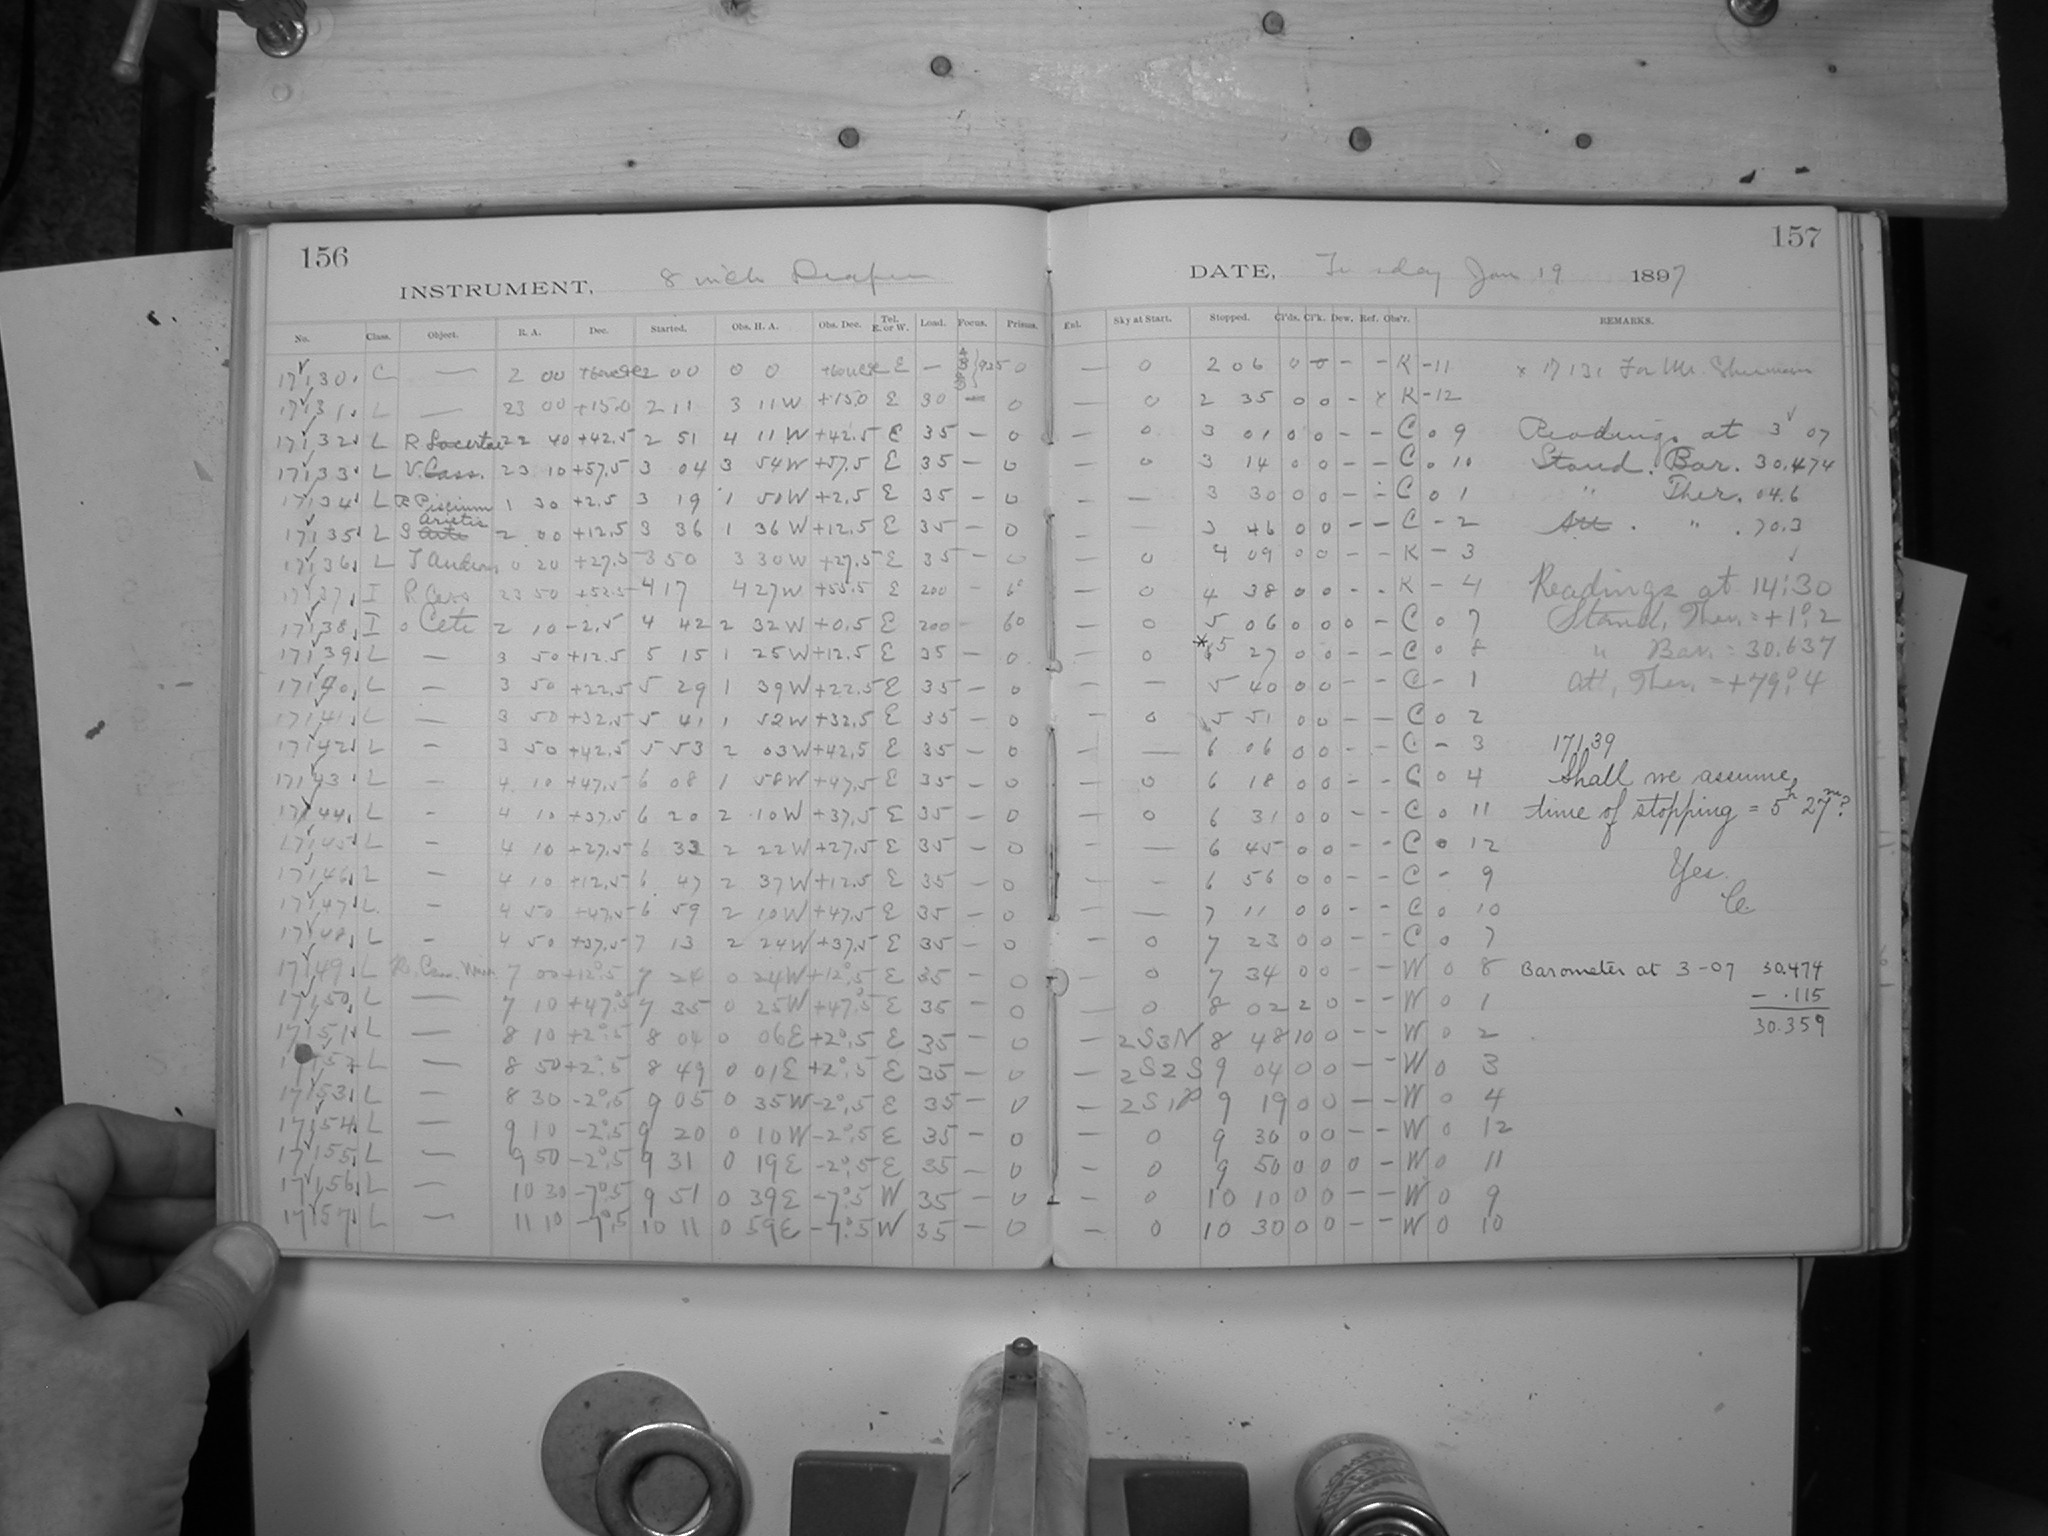 156
INSTRUMENT, 8 inch Draper
No. Class. Object. R. A. Dec. Started. Obs. H. A. Obs. Dec. Tel. E. or W. Load. Focus. Prisms.
17130. C — 2 00 2 00 0 0 E — 0
17131. L — 23 00 +15.0 2 11 3 11W +15.0 E 30 0
17132. L R Lacertae 22 40 +42.5 2 51 4 11 W +42.5 E 35 — 0
17133. L V. Cass. 23 10 +57.5 3 04 3 54W +57.5 E 35 — 0
17134. L R Piscium 1 30 +2.5 3 19 1 50W +2.5 E 35 — 0
17135. L S Arietis 2 00 +12.5 3 36 1 36 W +12.5 E 35 — 0
17136. L T Androm 0 20 +27.5 3 50 3 30W +27.5 E 35 — 0
17137. I R. Cass 23 50 +52.5 4 17 4 27W +55.5 E 200 - 6°
17138. I o Ceti 2 10 -2.5 4 42 2 32W +0.5 E 200 - 60
17139. L — 3 50 +12.5 5 15 1 25W +12.5 E 35 — 0
17140. L — 3 50 +22.5 5 29 1 39W +22.5 E 35 — 0
17141. L — 3 50 +32.5 5 41 1 52W +32.5 E 35 — 0
17142. L — 3 50 +42.5 5 53 2 03W +42.5 E 35 — 0
17143. L — 4 10 +47.5 6 08 1 58W +47.5 E 35 — 0
17144. L — 4 10 +37.5 6 20 2 10W +37.5 E 35 — 0
17145. L — 4 10 +27.5 6 33 2 22W +27.5 E 35 — 0
17146. L — 4 10 +12.5 6 47 2 37W +12.5 E 35 — 0
17147. L — 4 50 +47.5 6 59 2 10W +47.5 E 35 — 0
17148. L — 4 50 +37.5 7 13 2 24W +37.5 E 35 — 0
17149. L Can. Min 7 00 +12°.5 7 24 0 24W +12°.5 E 35 — 0
17150. L — 7 10 +47°.5 7 35 0 25W +47°.5 E 35 — 0
17151. L — 8 10 +2°.5 8 04 0 06E +2°.5 E 35 — 0
17152 L — 8 50 +2°.5 8 49 0 01E +2°.5 E 35 — 0
17153. L — 8 30 -2°.5 9 05 0 35W -2°.5 E 35 — 0
17154. L — 9 10 -2°.5 9 20 0 10W -2°.5 E 35 — 0
17155. L — 9 50 -2°.5 9 31 0 19E -2°.5 E 35 — 0
17156. L — 10 30 -7°.5 9 51 0 39E -7°.5 W 35 — 0
17157. L — 11 10 -7°.5 10 11 0 59E -7°.5 W 35 — 0
157
DATE, Tuesday Jan 19 1897
Enl. Sky at Start. Stopped. Cl'ds. Cl'k. Dew. Ref. Obs'r. REMARKS.
— 0 2 06 0 0 - - K -11 x 17131 For Mr. Sherman
— 0 2 35 0 0 - x K -12
— 0 3 01 0 0 - - C 0 9 Readings at 3 07
— 0 3 14 0 0 - - C 0 10 Stand. Bar. 30.474
— — 3 30 0 0 - - C 0 1 " Ther. 04.6
— 3 46 0 0 - - C - 2 Att. " 70.3
— 0 4 09 0 0 - - K - 3
— 0 4 38 0 0 - - K - 4 Readings at 14:30
— 0 5 06 0 0 0 - C 0 7 Stand. Ther. = +1°.2
— 0 *5 27 0 0 - - C 0 8 " Bar. = 30.637
— — 5 40 0 0 - - C - 1 Att. Ther. = +79°.4
— 0 5 51 0 0 - - C 0 2
— — 6 06 0 0 - - C - 3 17139
— 0 6 18 0 0 - - C 0 4 Shall we assume
— 0 6 31 0 0 - - C 0 11 time of stopping = 5h 27m?
— — 6 45 0 0 - - C 0 12
— — 6 56 0 0 - - C - 9 Yes.
— — 7 11 0 0 - - C 0 10 C.
— 0 7 23 0 0 - - C 0 7
— 0 7 34 0 0 - - W 0 8 Barometer at 3-07 30.474
— 0 8 02 2 0 - - W 0 1 - .115
— 2S3N 8 48 10 0 - - W 0 2 30.359
— 2S2S 9 04 0 0 - - W 0 3
— 9 19 0 0 - - W 0 4
— 0 9 30 0 0 - - W 0 12
— 0 9 50 0 0 0 - W 0 11
— 0 10 10 0 0 - - W 0 9
— 0 10 30 0 0 - - W 0 10